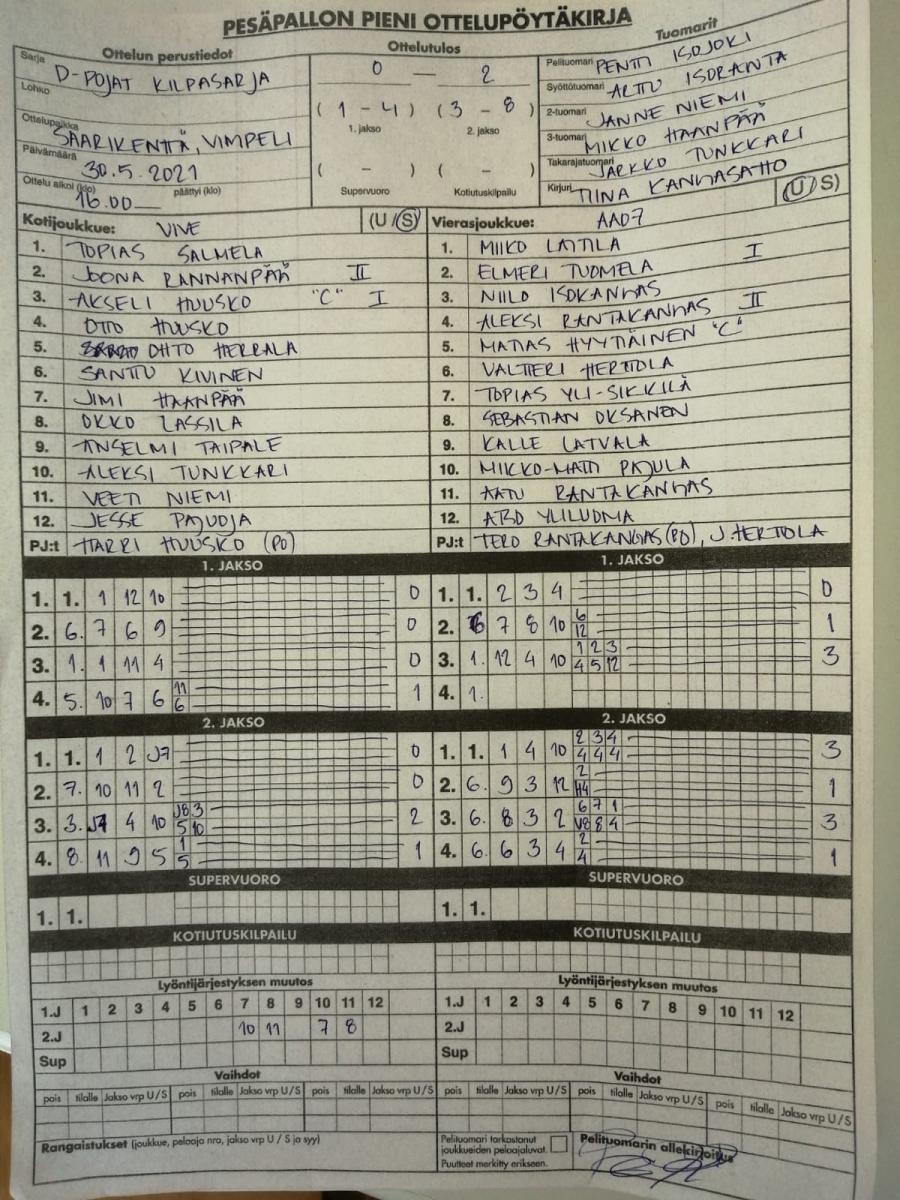 PESÄPALLON PIENI OTTELUPÖYTÄKIRJA
Ottelun perustiedot Ottelutulos Tuomarit
Sarja D-POJAT KILPASARJA
Lohko
Ottelupaikka SAARIKENTTÄ, VIMPELI
Päivämäärä 30.5.2021
Ottelu alkoi (klo) 16.00 päättyi (klo)
0 — 2
(1 - 4) (3 - 8)
1. jakso 2. jakso
( - ) ( - )
Supervuoro Kotiutuskilpailu
Pelituomari PENTTI ISOJOKI
Syöttötuomari ARTTU ISORANTA
2-tuomari JANNE NIEMI
3-tuomari MIKKO HAANPÄÄ
Takarajatuomari JARKKO TUNKKARI
Kirjuri TIINA KANGASAHO
Kotijoukkue: VIVE (U / S)
1. TOPIAS SALMELA
2. JOONA RANNANPÄÄ II
3. AKSELI HUUSKO "C" I
4. OTTO HUUSKO
5. OHTO HERRALA
6. SANTTU KIVINEN
7. JIMI HAANPÄÄ
8. OKKO LASSILA
9. ANSELMI TAIPALE
10. ALEKSI TUNKKARI
11. VEETI NIEMI
12. JESSE PAJUOJA
PJ:t HARRI HUUSKO (PO)
Vierasjoukkue: AA07 (U / S)
1. MIIKO LATTILA
2. ELMERI TUOMELA I
3. NIILO ISOKANGAS
4. ALEKSI RANTAKANGAS II
5. MATIAS HYYTIÄINEN "C"
6. VALTTERI HERTTOLA
7. TOPIAS YLI-SIKKILÄ
8. SEBASTIAN OKSANEN
9. KALLE LATVALA
10. MIKKO-MATTI PAJULA
11. AATU RANTAKANGAS
12. ATBO YLILUOMA
PJ:t TERO RANTAKANGAS (PO), J. HERTTOLA
1. JAKSO
1. 1. 1 12 10 0
2. 6. 7 6 9 0
3. 1. 1 11 4 0
4. 5. 10 7 6 11 1
6
1. JAKSO
1. 1. 2 3 4 0
2. 6 7 8 10 6 1
12
3. 1. 12 4 10 1 2 3 3
4 5 12
4. 1.
2. JAKSO
1. 1. 1 2 J7 0
2. 7. 10 11 2 0
3. 3. J7 4 10 J8 3 2
5 10
4. 8. 11 9 5 1 1
5
2. JAKSO
1. 1. 1 4 10 2 3 4 3
4 4 4
2. 6. 9 3 12 2 1
H4
3. 6. 8 3 2 6 7 1 3
V8 8 4
4. 6. 6 3 4 2 1
4
SUPERVUORO SUPERVUORO
1. 1. 1. 1.
KOTIUTUSKILPAILU KOTIUTUSKILPAILU
Lyöntijärjestyksen muutos Lyöntijärjestyksen muutos
1.J 1 2 3 4 5 6 7 8 9 10 11 12 1.J 1 2 3 4 5 6 7 8 9 10 11 12
2.J 10 11 7 8 2.J
Sup Sup
Vaihdot Vaihdot
pois tilalle Jakso vrp U/S pois tilalle Jakso vrp U/S pois tilalle Jakso vrp U/S pois tilalle Jakso vrp U/S pois tilalle Jakso vrp U/S pois tilalle Jakso vrp U/S
Rangaistukset (joukkue, pelaaja nro, jakso vrp U / S ja syy)
Pelituomari tarkastanut
joukkueiden pelaajaluvat.
Puutteet merkitty erikseen.
Pelituomarin allekirjoitus